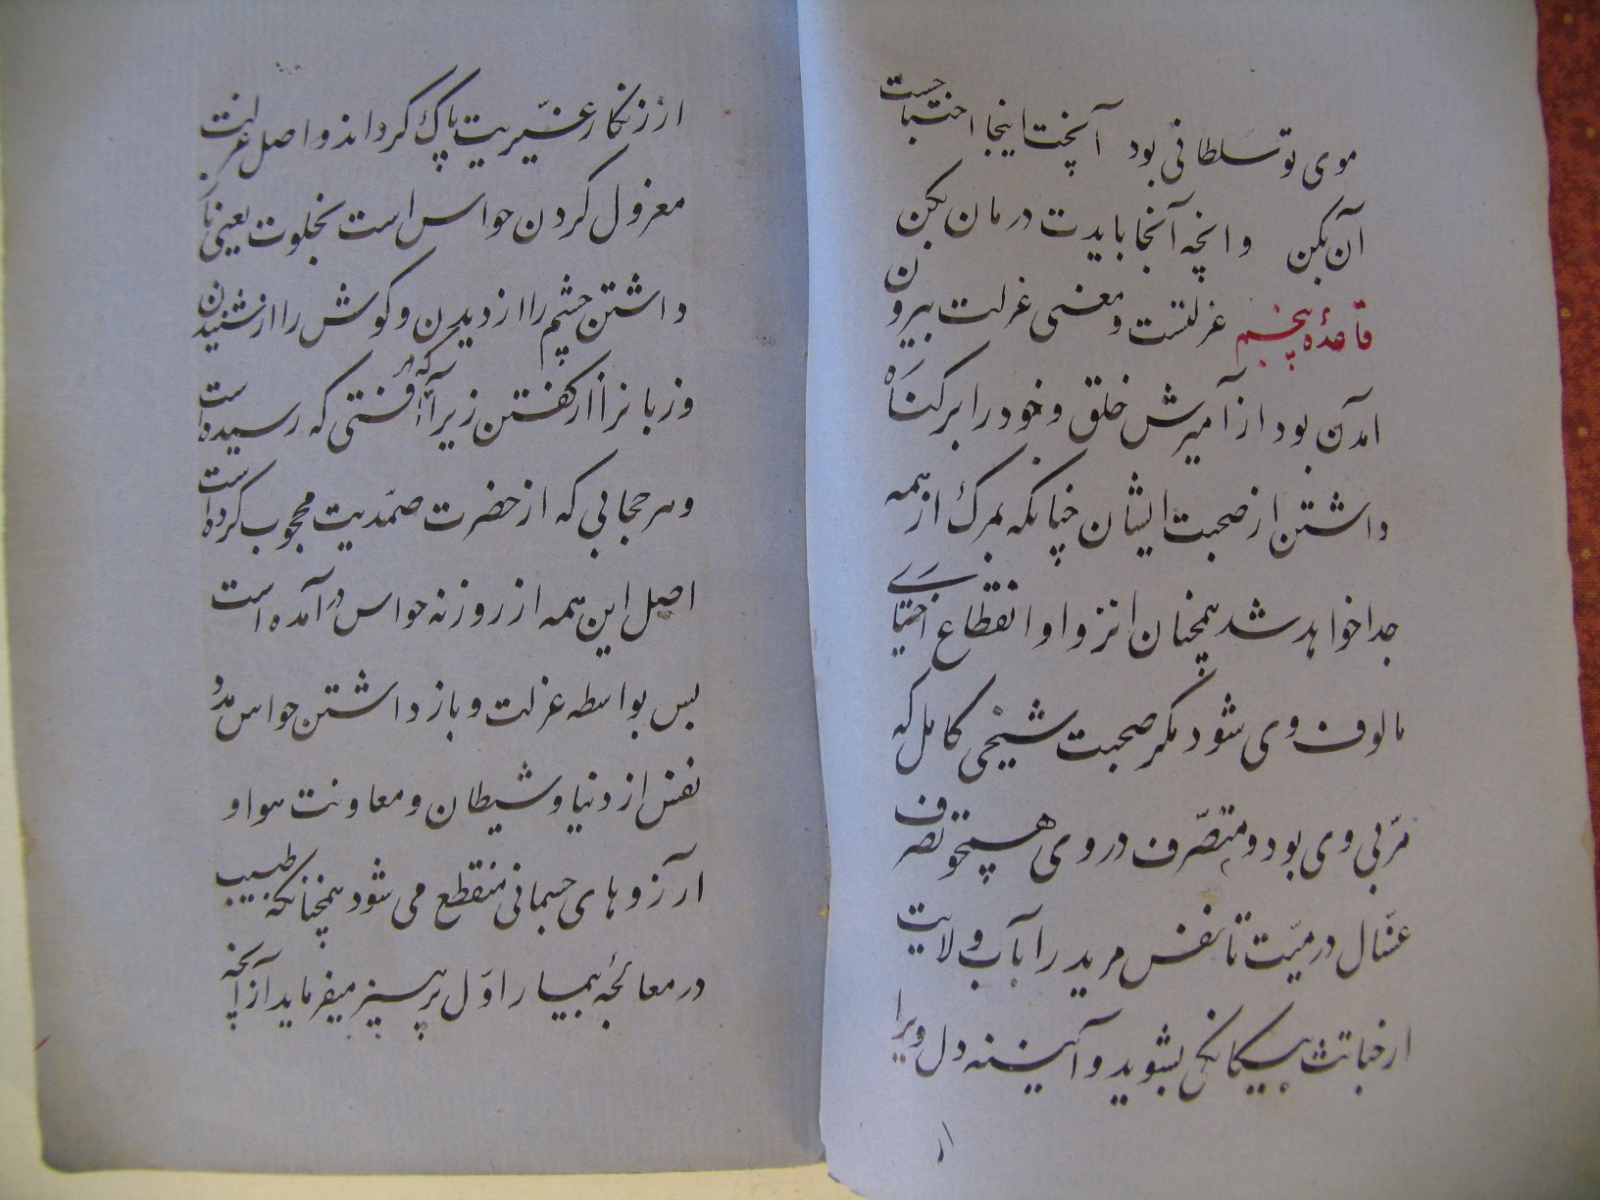 موی تو سلطانی بود آنچت اینجا احتباجست
آن بکن وانچه آنجا بایدت درمان بکن
قاعدهٔ پنجم عزلتست و معنی عزلت بیرون
آمدن بود از آمیزش خلق و خود را بر کناره
داشتن از صحبت ایشان چنانکه بمرگ از همه
جدا خواهد شد همچنان انزوا و انقطاع اختیاری
مالوف وی شود مگر صحبت شیخی کامل که
مربّی وی بود و متصرّف در وی همچو تصرف
غسّال در میّت تا نفس مرید را بآب ولایت
از خباثت بیگانگی بشوید و آئینه دل ویرا
از
از زنکار غیریت پاک کرداند و اصل عزلت
معزول کردن حواس است بخلوت یعنی باز
داشتن چشم را از دیدن و کوش را از شنیدن
و زبانرا از کفتن زیرا که هر آفتی که رسیده است
و هر حجابی که از حضرت صمدیت محجوب کرده است
اصل این همه از روزنه حواس درآمده است
پس بواسطه عزلت و باز داشتن حواس مدد
نفس از دنیا و شیطان و معاونت هوا و
آرزوهای جسمانی منقطع می شود همچنانکه طبیب
در معالجهٔ بیمار اوّل پرهیز میفرماید از آنچه